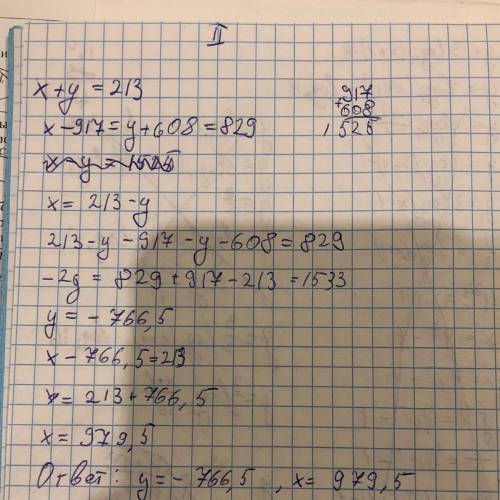 II
x+y=213
917
+608
1525
x-917=y+608=829
x=213-y
213-y-917-y-608=829
-2y=829+917-213=1533
y=-766,5
x-766,5=213
x=213+766,5
x=979,5
Ответ: y=-766,5, x=979,5